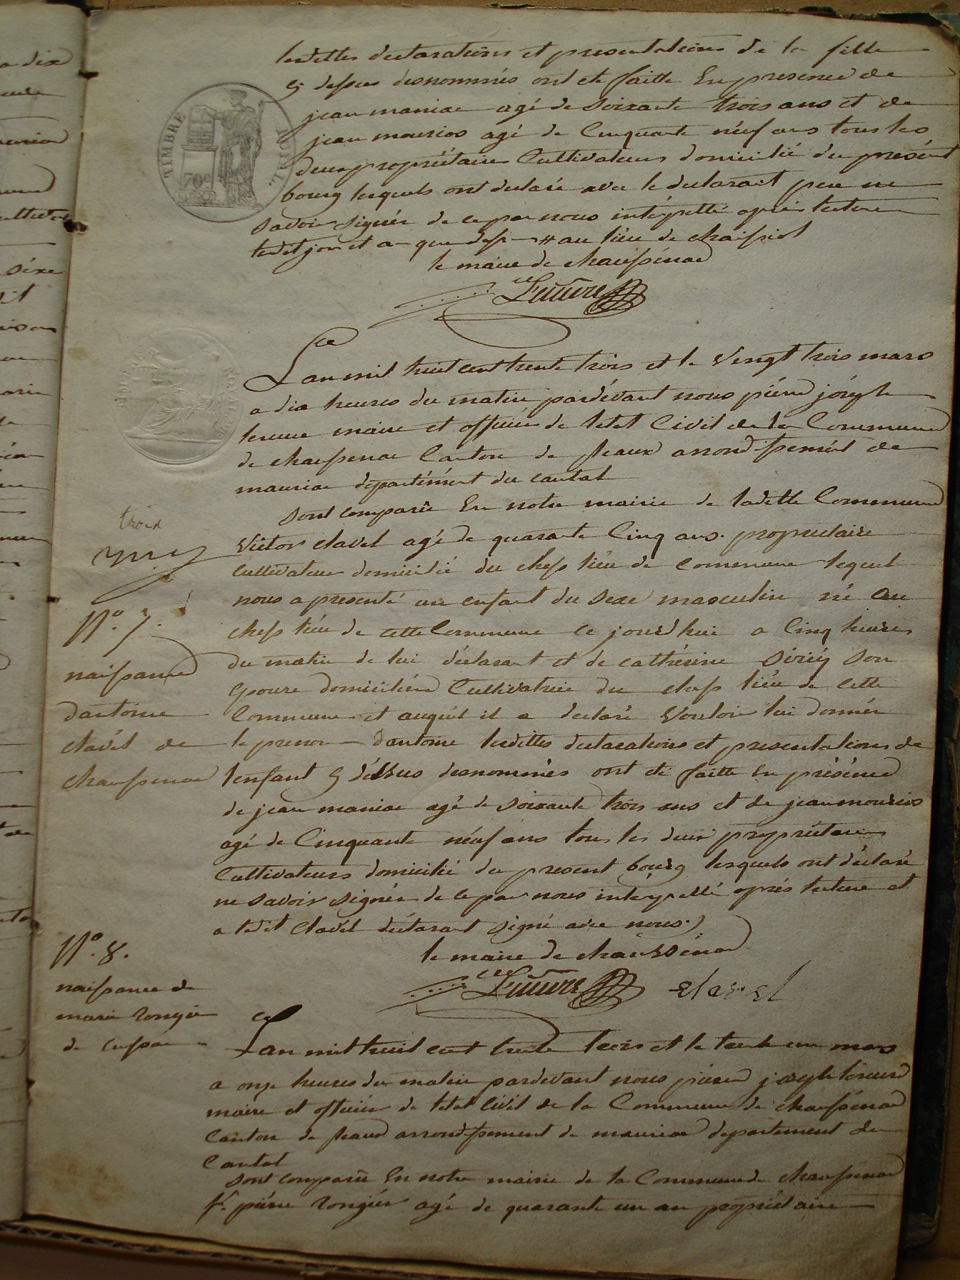 lesdittes declarations et presentations de la fille
cy dessus desnommés ont eté faitte En presence de
jean maniac agé de soixante trois ans et de
jean mourios agé de Cinquante néuf ans tous les
deux propriétaire Cultivateurs domicilié du présent
bourg lesquels ont declaré avec le declarant pour ne
savoir signér de ce par nous intérpellé après lecture
au lieu de
le maire de chaussenac
TIMBRE ROYAL
70c
L'an mil huit cent trente trois et le Vingt trois mars
a dix heures du matin pardévant nous piérre joséph
lescure maire et officiér de létat Civil de la Commune
de chaussenac Canton de pleaux arrondissemént de
mauriac departémént du cantal
sont comparu En notre mairie de laditte Commune
trois
Victor clavel agé de quarante Cinq ans propriétaire
Cultivateur domicilié du chefs liéu de Commune lequel
nous a presenté un enfant du Sexe masculin né au
Nº. 7.
chefs liéu de cette Commune ce jourdhui a Cinq heures
naissance
du matin de lui déclarant et de cathérine son
Epouse domiciliée Cultivatrice du chefs liéu de Cette
dantoine
Commune et auquél il a declaré Vouloir lui donnér
clavél de
le prenon dantoine lesdittes declarations et presentations de
chaussenac
lenfant cy déssus desnommés ont eté faitte En présénce
de jean maniac agé de soixante trois ans et de jean mourios
agé de Cinquante néuf ans tous les deux propriétaire
Cultivateurs domicilié du present bourg lesquels ont déclaré
ne savoir signér de ce par nous interpellé après lecture et
a ledit Clavél déclarant signé avec nous
Nº. 8.
le maire de chaussenac
naissance de
Lescure clavel
marie rongiér
de
L'an mil huit cent trente trois et le trente un mars
a onze heures du matin pardevant nous piérre joséph lescure
maire et officiér de létat Civil de la Commune de chaussénac
Canton de pleaux arrondissement de mauriac departement du
Cantal
sont comparu En notre mairie de la Commune de chaussenac
piérre rongiér agé de quarante un an propriétaire